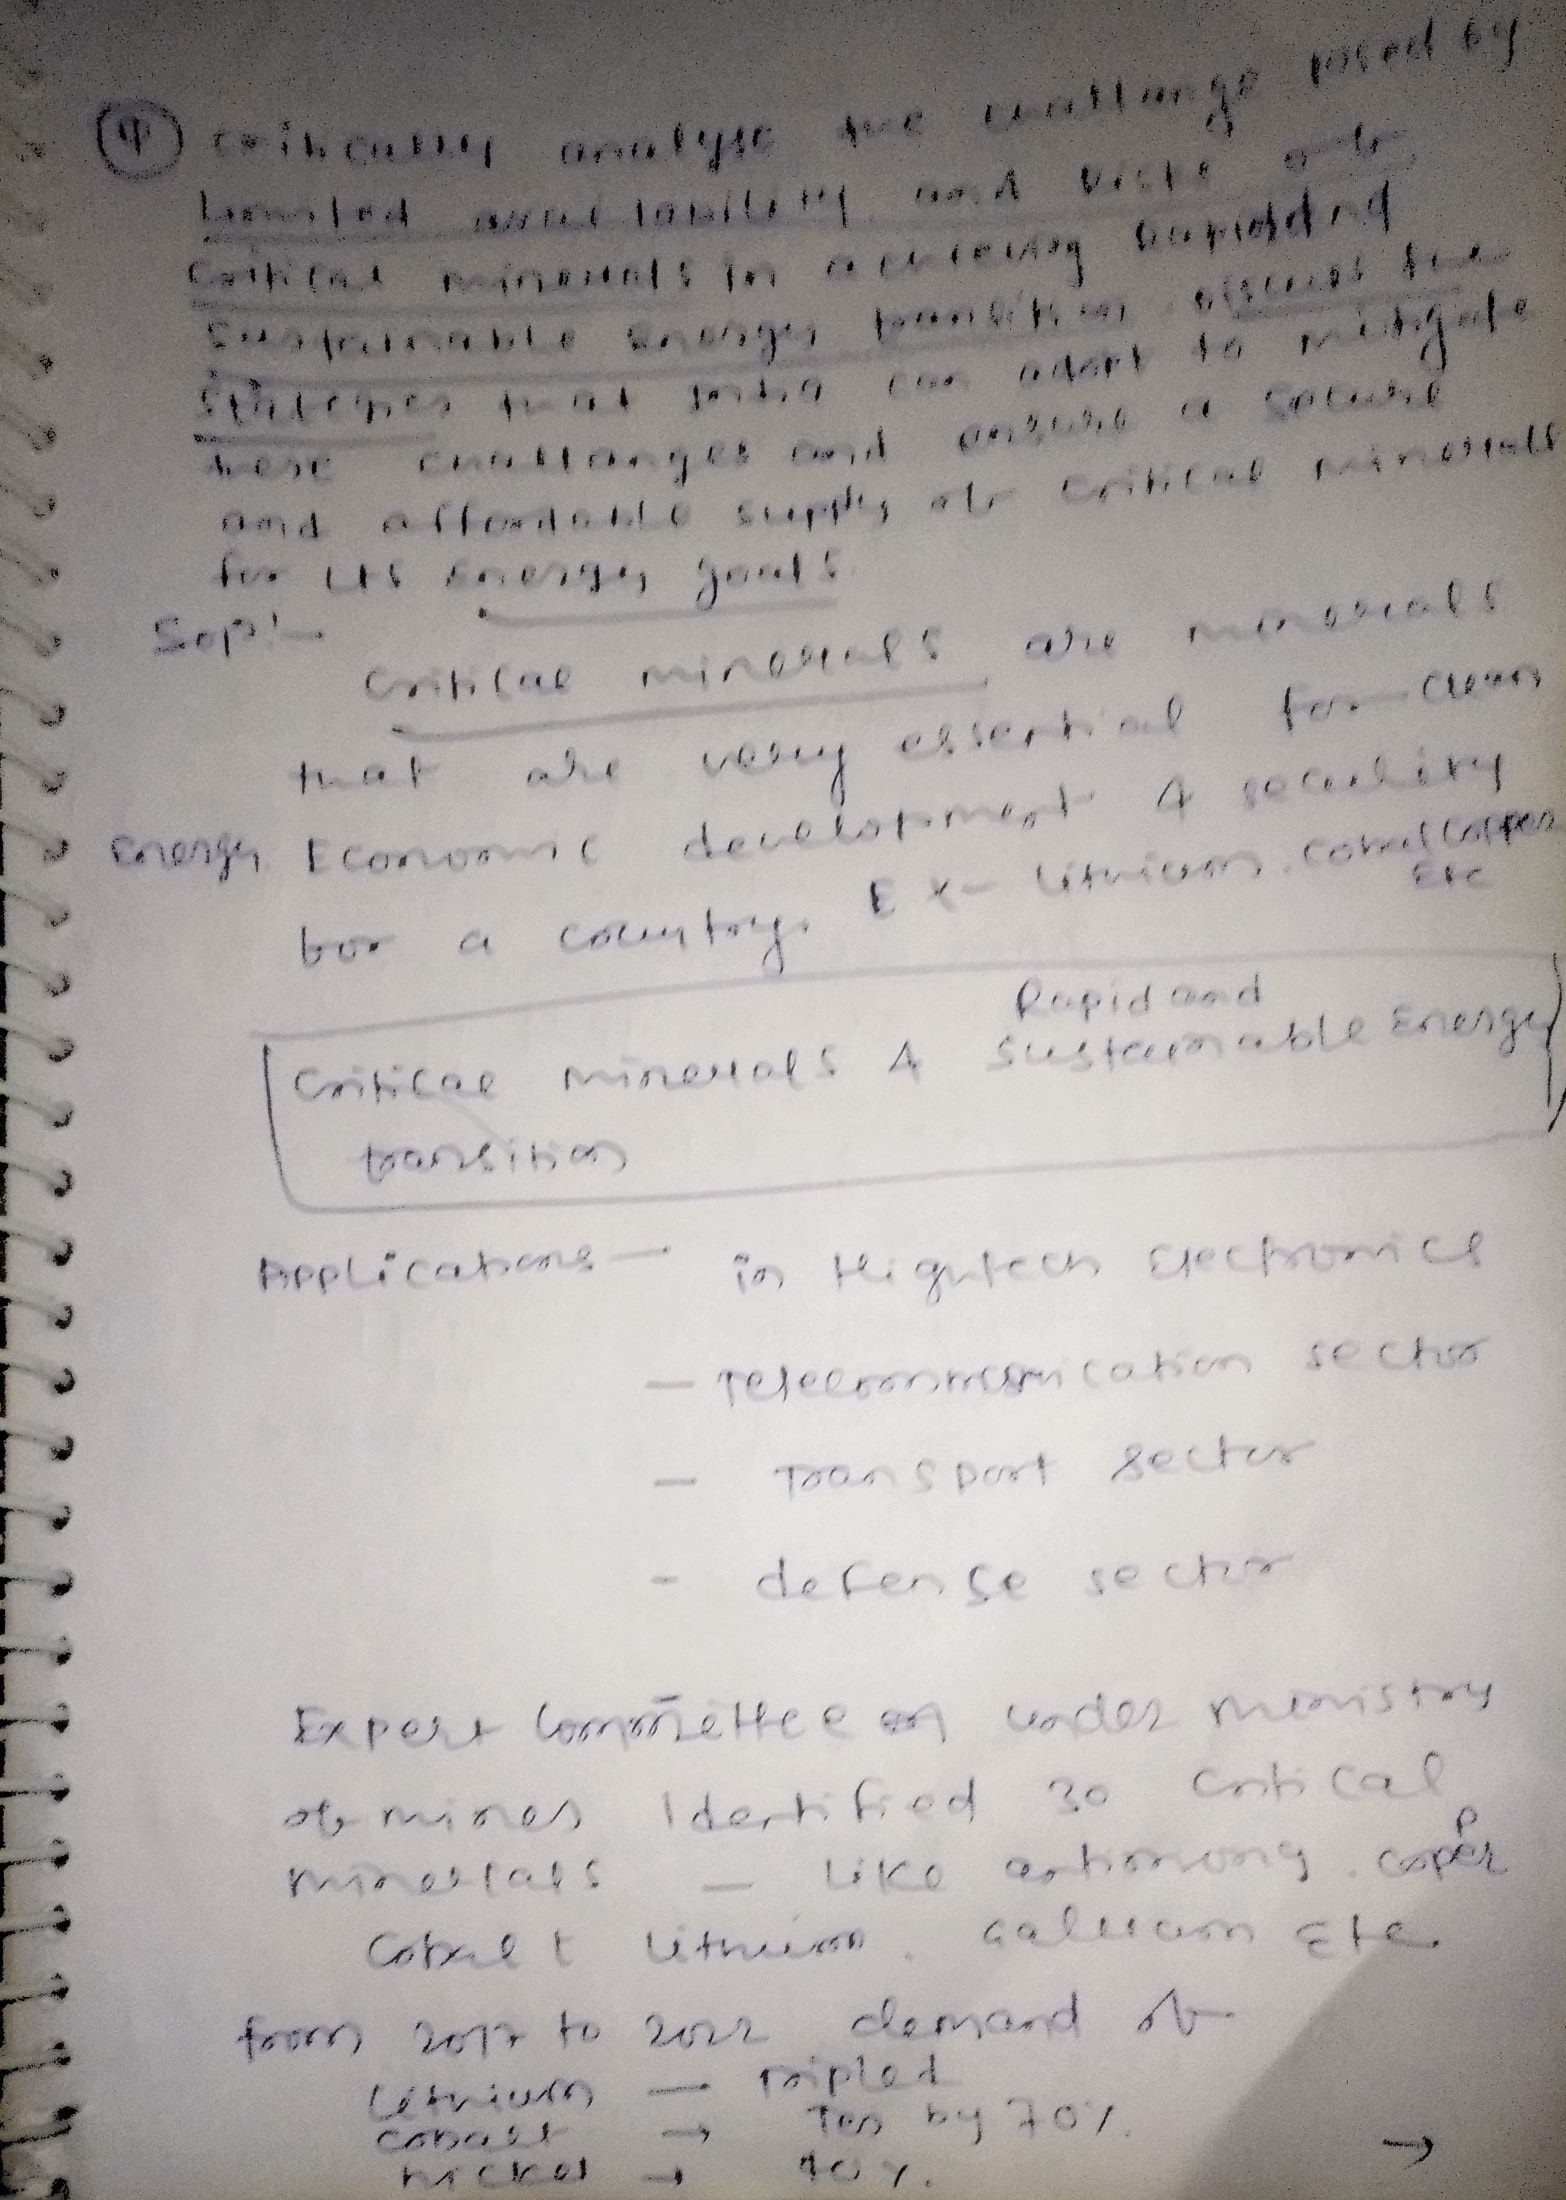 ④ critically analyse the challenge posed by
limited availability and risks of
critical minerals in achieving rapid and
sustainable energy transition. discuss the
strategies that India can adopt to mitigate
these challenges and ensure a secure
and affordable supply of critical minerals
for its energy goals.
critical minerals are minerals
that are very essential for clean
energy Economic development & security
for a country. Ex- Lithium. cobalt copper
Etc
Rapid and
critical minerals & sustainable Energy
transition
Applications — in Hightech Electronics
— Telecommunication sector
— Transport sector
- defense sector
Expert Committee under ministry
of mines Identified 30 critical
minerals — Like antimony. copper
Cobalt Lithium. Gallium Etc.
from 2017 to 2022 demand of
Lithium — Tripled
cobalt → by 70%.
nickel → 40%. →